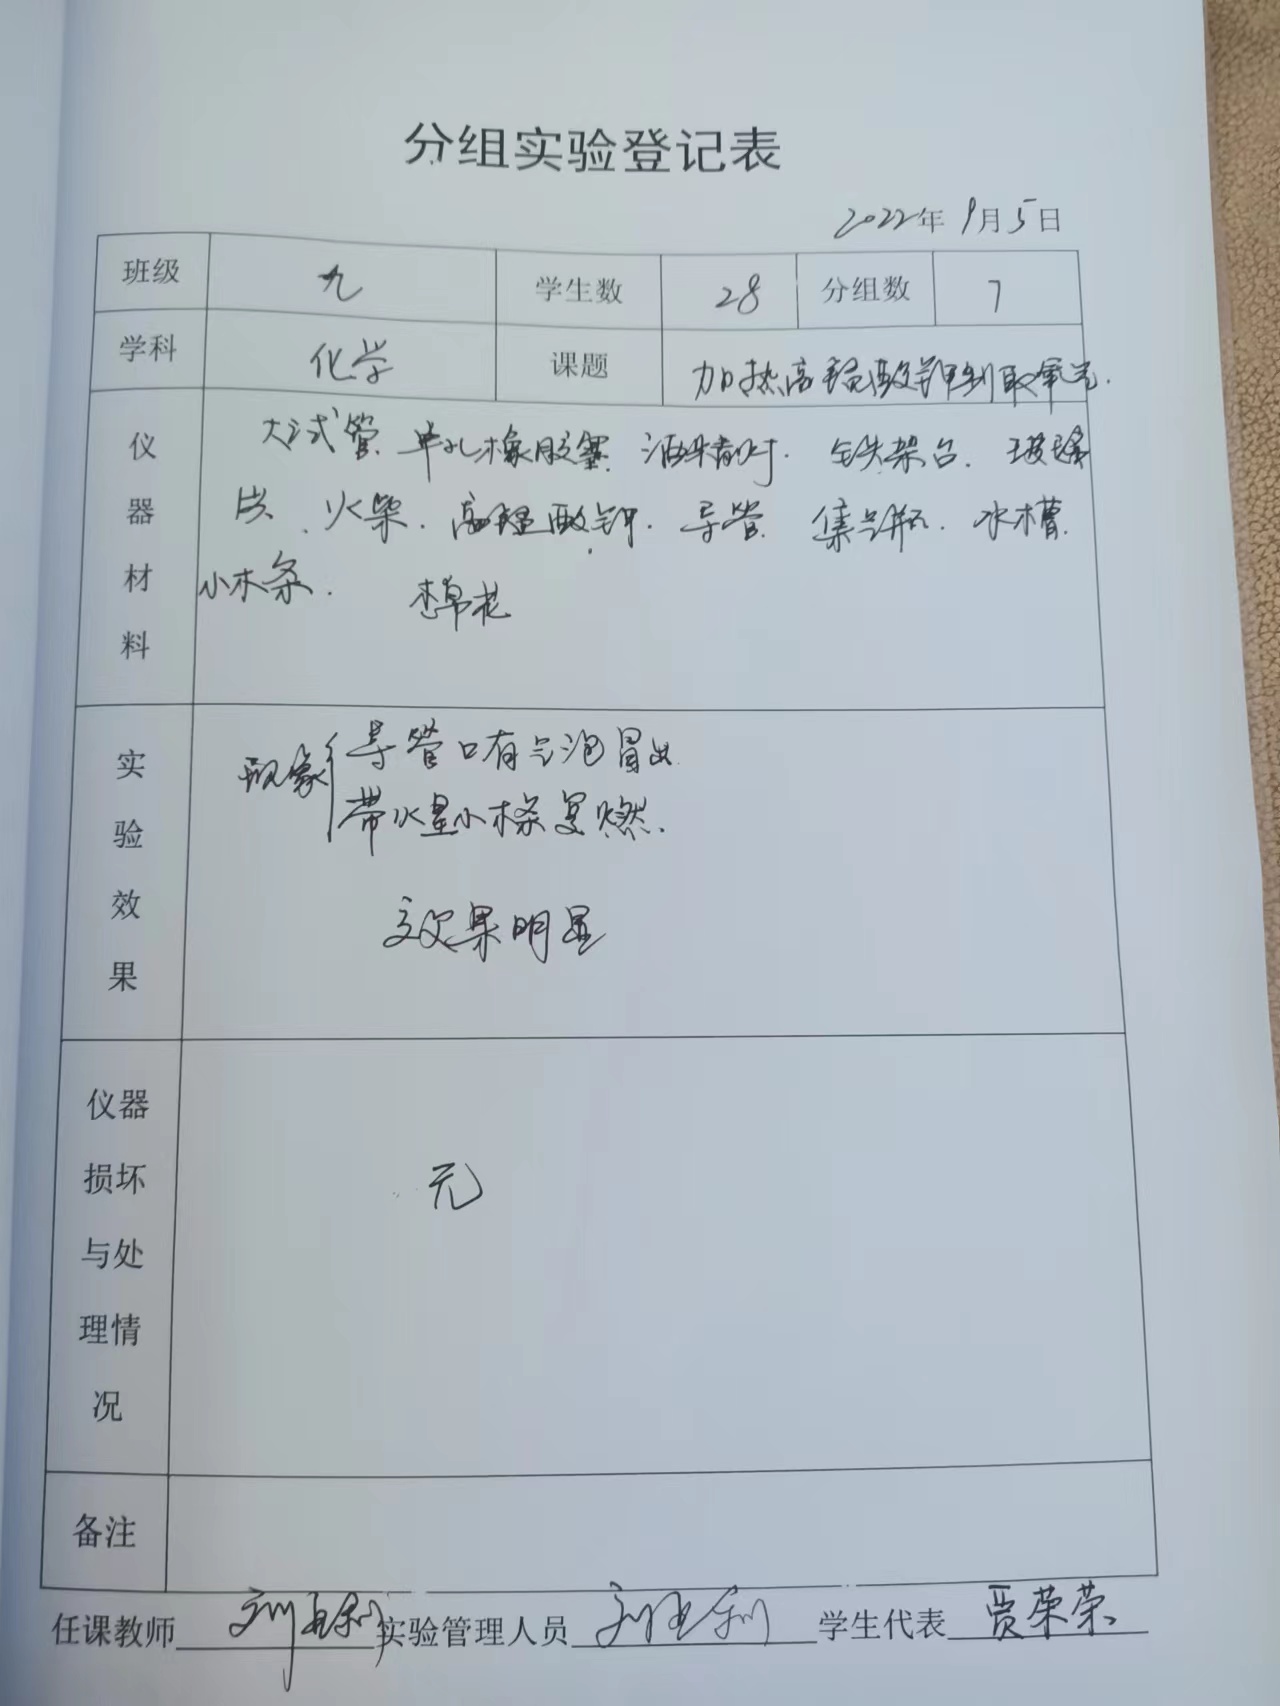 分组实验登记表
2022年9月5日
班级 九 学生数 28 分组数 7
学科 化学 课题 加热高锰酸钾制取氧气.
仪器材料
大试管 单孔橡胶塞 酒精灯. 铁架台. 玻璃
片、火柴. 高锰酸钾. 导管 集气瓶. 水槽.
小木条. 棉花
实验效果
现象 导管口有气泡冒出
带火星小木条复燃.
效果明显
仪器损坏与处理情况
无
备注
任课教师 实验管理人员 学生代表 贾荣荣